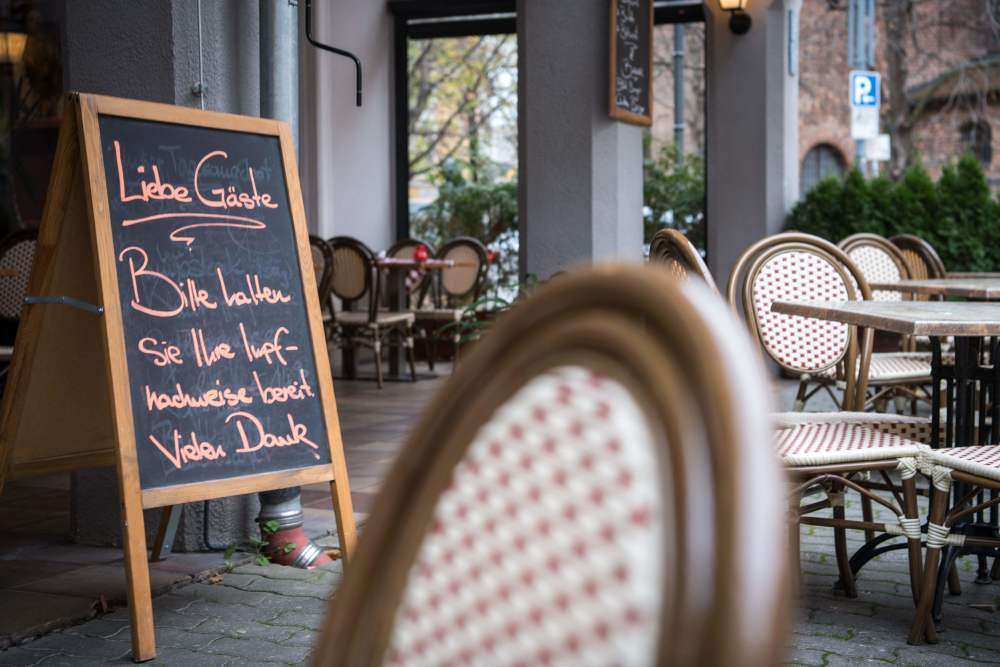 Liebe Gäste
Bitte halten
sie Ihre Impf-
nachweise bereit.
Vielen Dank
P